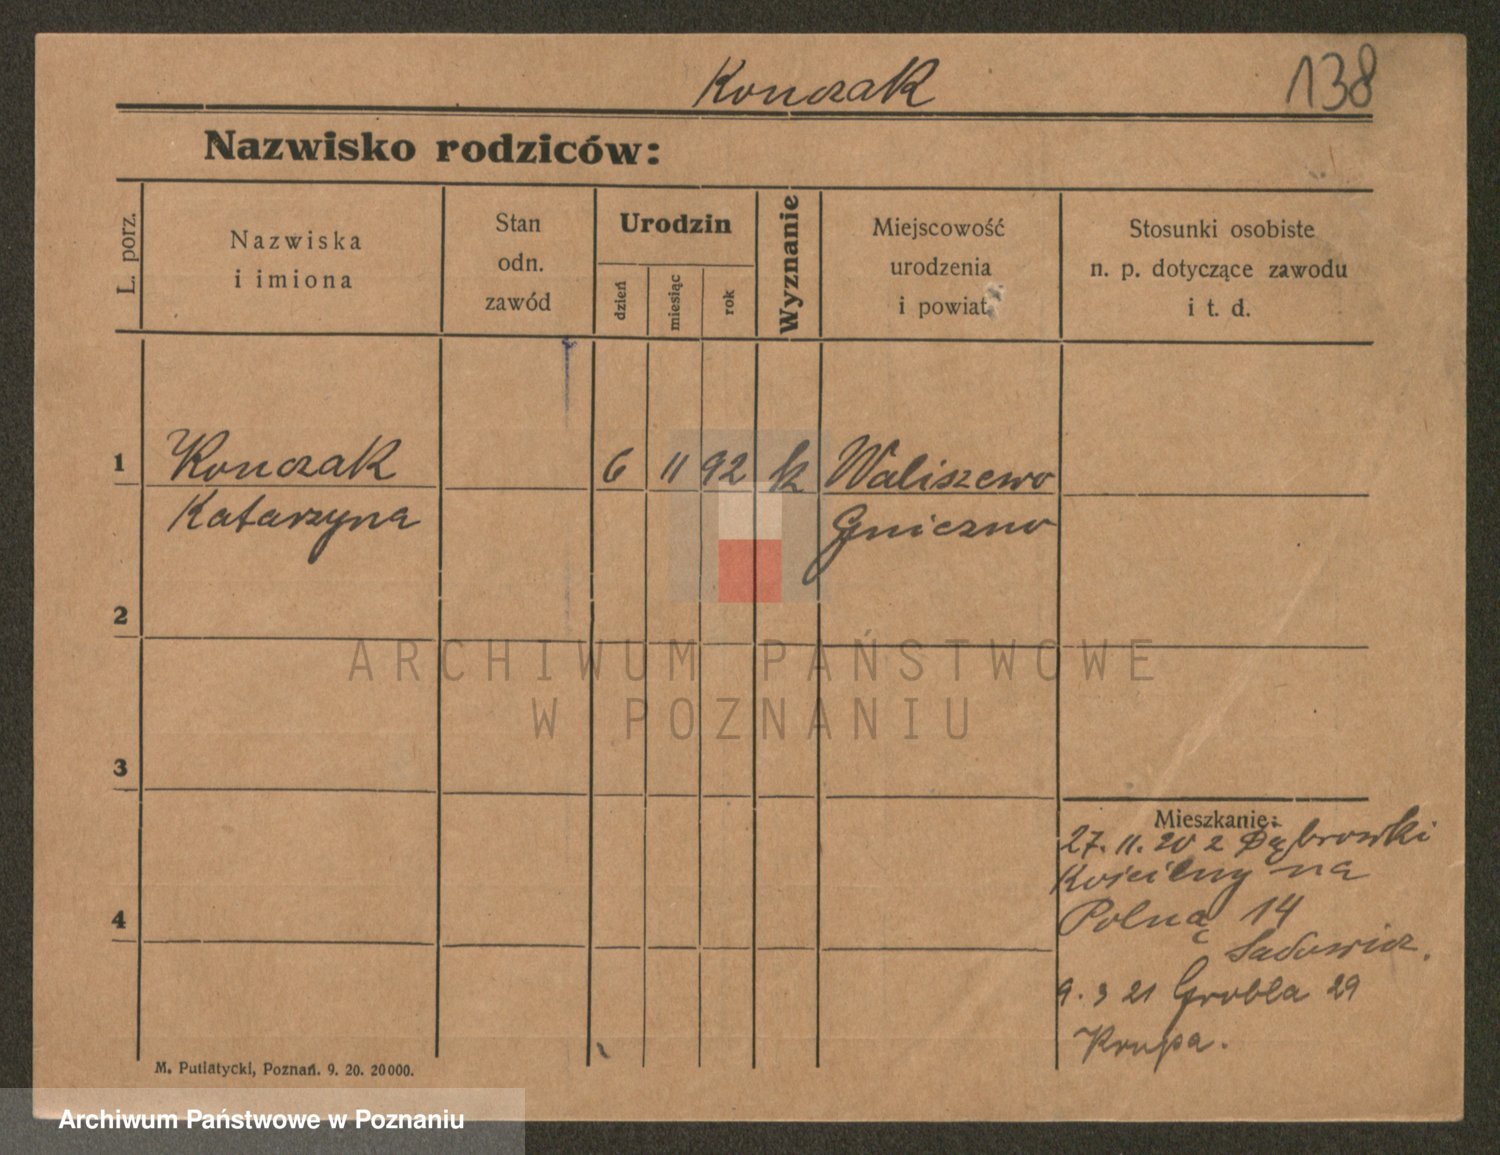 Konczak
138
Nazwisko rodziców:
L. porz.
Nazwiska
i imiona
Stan
odn.
zawód
Urodzin
dzień
miesiąc
rok
Wyznanie
Miejscowość
urodzenia
i powiat
Stosunki osobiste
n. p. dotyczące zawodu
i t. d.
1
Konczak
6
11
92
k
Waliszewo
Katarzyna
Gniezno
2
ARCHIWUM PAŃSTWOWE
W POZNANIU
3
Mieszkanie:
27. 11. 20 z Dąbrowki
Kościelny na
4
Polną 14
Sadowicz.
9. 3 21 Grobla 29
Krupa.
M. Putiatycki, Poznań. 9. 20. 20000.
Archiwum Państwowe w Poznaniu